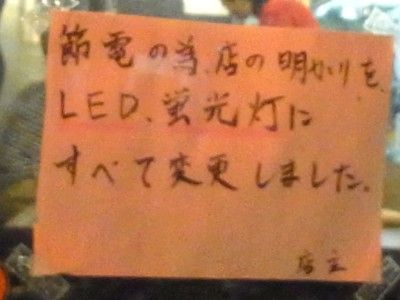 節電の為、店の明かりを、
LED、蛍光灯に
すべて変更しました。
店主